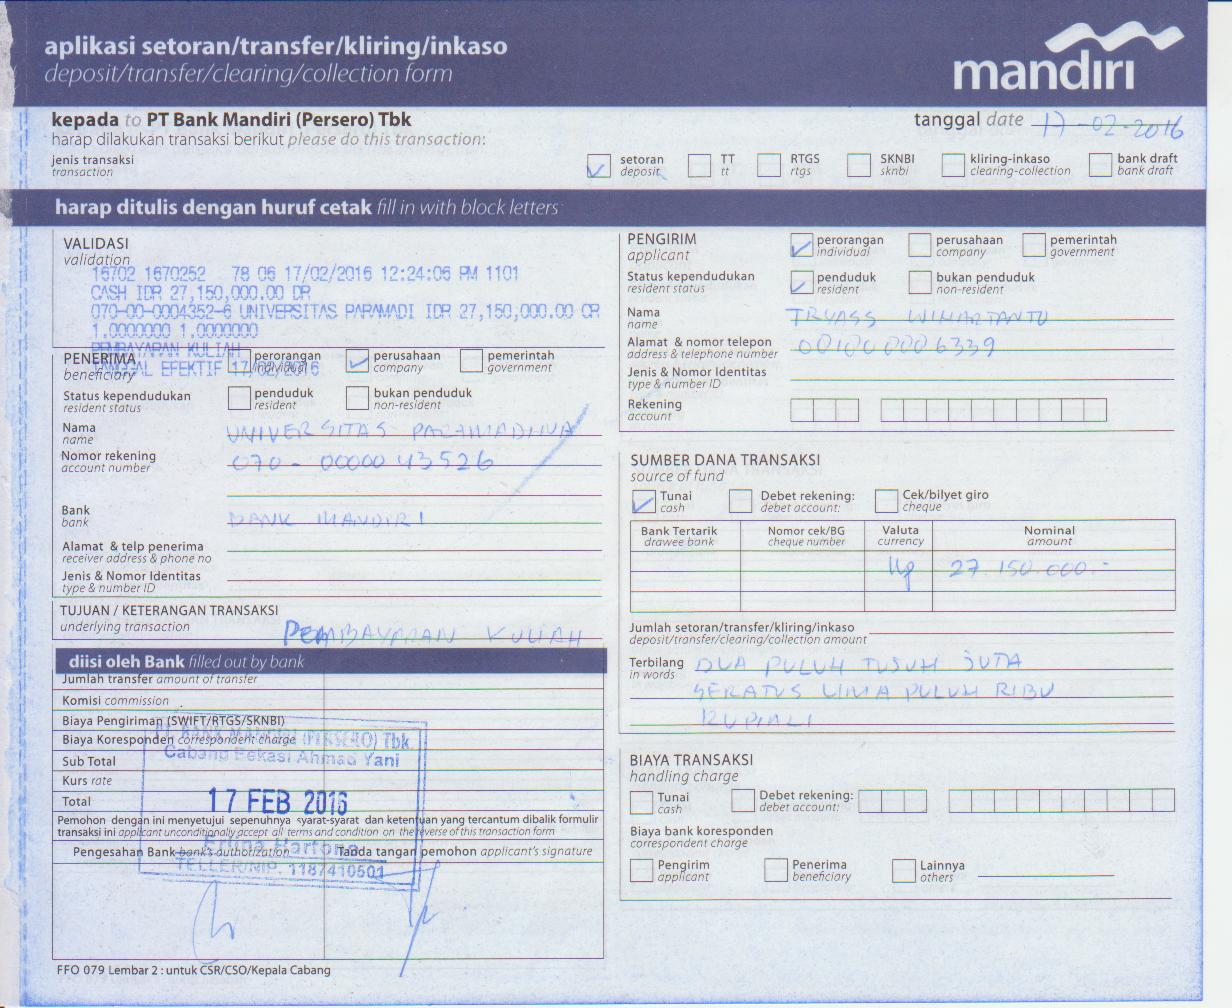 aplikasi setoran/transfer/kliring/inkaso
deposit/transfer/clearing/collection form
mandiri
kepada to PT Bank Mandiri (Persero) Tbk
tanggal date 17-02-2016
harap dilakukan transaksi berikut please do this transaction:
jenis transaksi
transaction
setoran
deposit
TT
tt
RTGS
rtgs
SKNBI
sknbi
kliring-inkaso
clearing-collection
bank draft
bank draft
harap ditulis dengan huruf cetak fill in with block letters
VALIDASI
validation
16702 1670252 78 06 17/02/2016 12:24:06 PM 1101
CASH IDR 27,150,000.00 DR
070-00-0004352-6 UNIVERSITAS PARAMADI IDR 27,150,000.00 CR
1.0000000 1.0000000
PEMBAYARAN KULIAH
TANGGAL EFEKTIF 17/02/2016
PENERIMA
beneficiary
perorangan
individual
perusahaan
company
pemerintah
government
Status kependudukan
resident status
penduduk
resident
bukan penduduk
non-resident
Nama
name
UNIVERSITAS PARAMADINA
Nomor rekening
account number
070-0000043526
Bank
bank
BANK MANDIRI
Alamat & telp penerima
receiver address & phone no
Jenis & Nomor Identitas
type & number ID
TUJUAN / KETERANGAN TRANSAKSI
underlying transaction
PEMBAYARAN KULIAH
diisi oleh Bank filled out by bank
Jumlah transfer amount of transfer
Komisi commission
Biaya Pengiriman (SWIFT/RTGS/SKNBI)
Biaya Koresponden correspondent charge
Sub Total
Kurs rate
Total
PT BANK MANDIRI (PERSERO) Tbk
Cabang Bekasi Ahmad Yani
17 FEB 2016
Erlina Hartono
TELLER/NIP. 1187410501
Pemohon dengan ini menyetujui sepenuhnya syarat-syarat dan ketentuan yang tercantum dibalik formulir
transaksi ini applicant unconditionally accept all terms and condition on the reverse of this transaction form
Pengesahan Bank bank's authorization
Tanda tangan pemohon applicant's signature
FFO 079 Lembar 2 : untuk CSR/CSO/Kepala Cabang
PENGIRIM
applicant
perorangan
individual
perusahaan
company
pemerintah
government
Status kependudukan
resident status
penduduk
resident
bukan penduduk
non-resident
Nama
name
Alamat & nomor telepon
address & telephone number
Jenis & Nomor Identitas
type & number ID
Rekening
account
SUMBER DANA TRANSAKSI
source of fund
Tunai
cash
Debet rekening:
debet account:
Cek/bilyet giro
cheque
Bank Tertarik
drawee bank
Nomor cek/BG
cheque number
Valuta
currency
Nominal
amount
Rp 27.150.000.-
Jumlah setoran/transfer/kliring/inkaso
deposit/transfer/clearing/collection amount
Terbilang
in words
DUA PULUH TUJUH JUTA
SERATUS LIMA PULUH RIBU
RUPIAH
BIAYA TRANSAKSI
handling charge
Tunai
cash
Debet rekening:
debet account:
Biaya bank koresponden
correspondent charge
Pengirim
applicant
Penerima
beneficiary
Lainnya
others